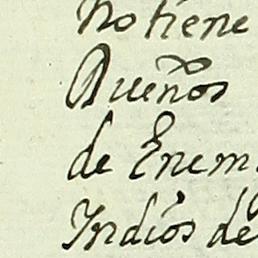 no tiene
Dueños
de Enem
Indios de